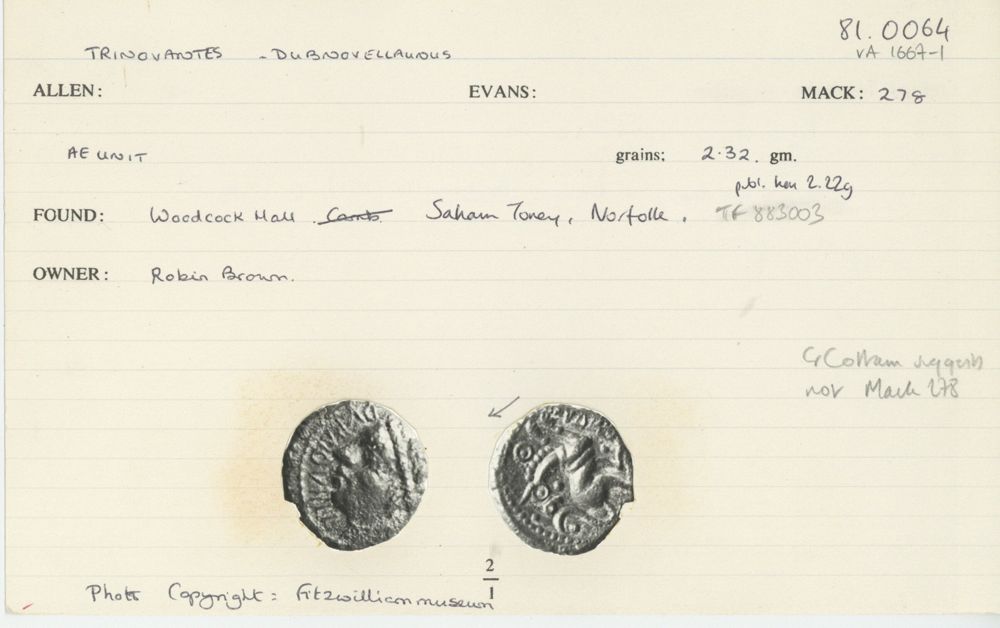 81.0064
TRINOVANTES - DUBNOVELLAUNUS
VA 1667-1
ALLEN: EVANS: MACK: 278
AE UNIT grains: 2.32. gm.
publ. hen 2.22g
FOUND: Woodcock Hall. Cambs Saham Toney, Norfolk. TF 883003
OWNER: Robin Brown.
G Cottam suggests
not Mack 278
2
1
Photo Copyright = Fitzwilliam museum